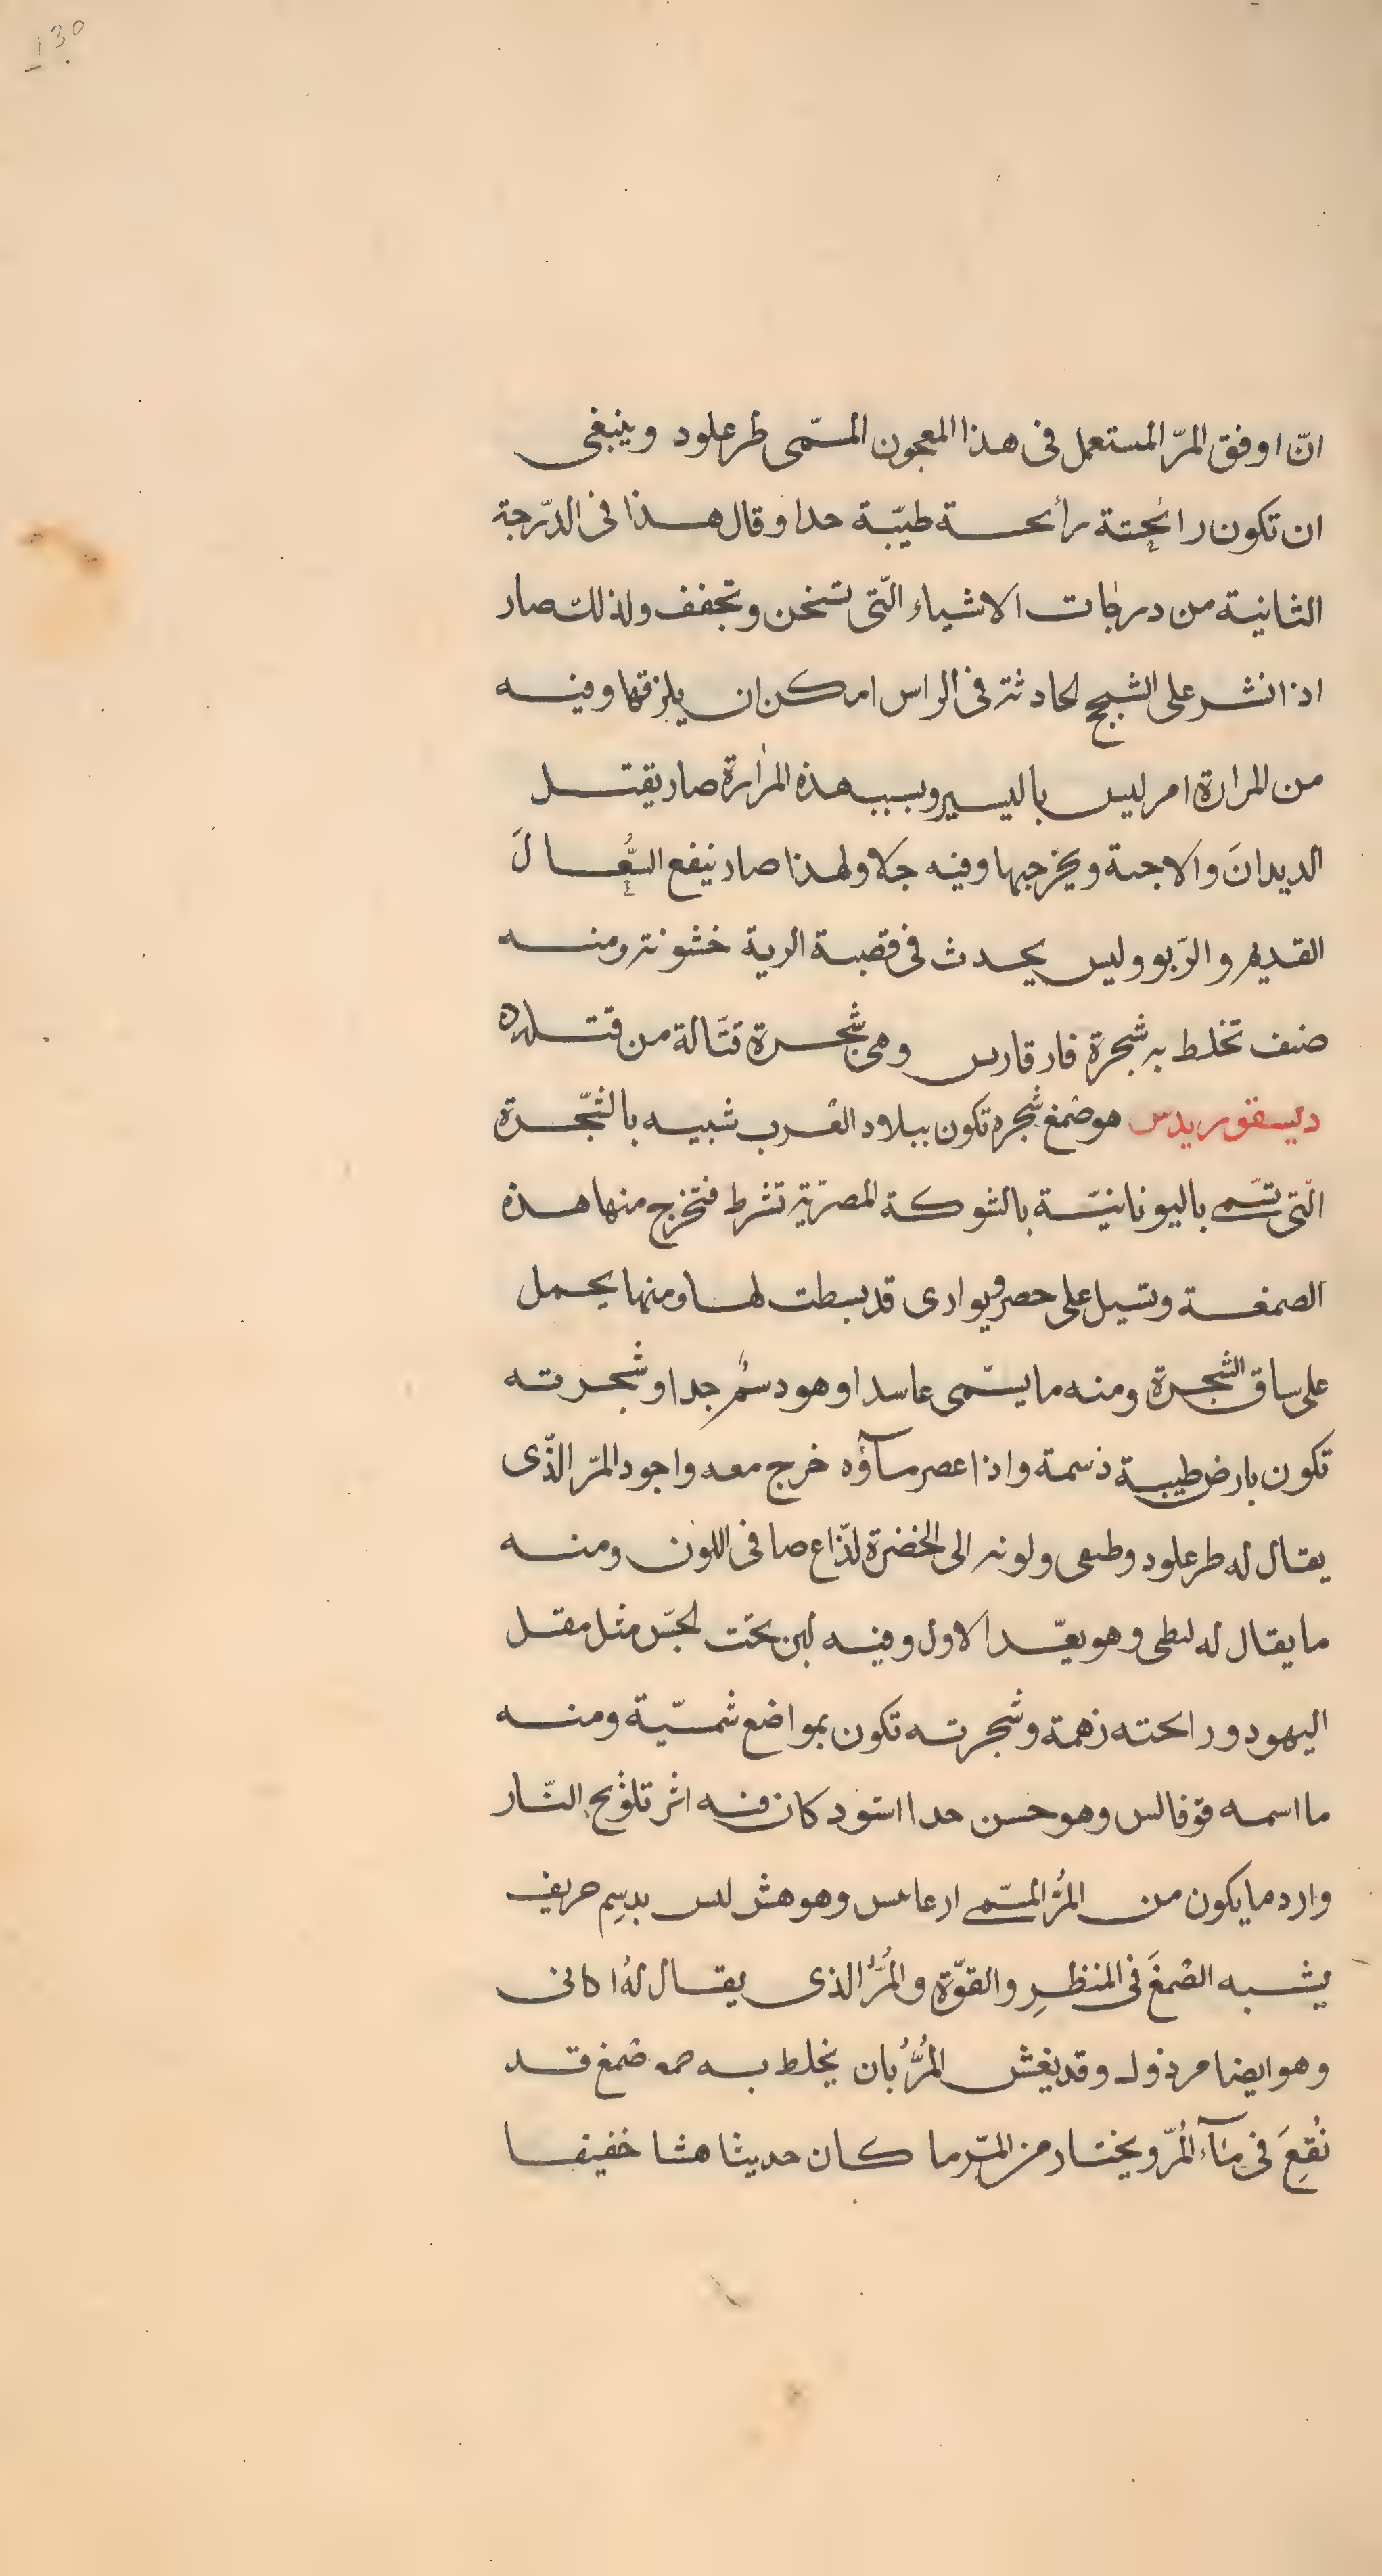 ١٣٥
انّ اوفق المرّ المستعمل فى هذا المعجون المسّمى طرعلود وينبغى
ان تكون رائحتة رأىحة طيّبة حدا وقال هذا فى الدّرجة
الثانية من درجات الاشياء الّتى تسخن وتجفف ولذلك صار
اذا نشر على الشجج لحادثة فى الراس امكن ان يلزقها وفيه
من المرارة امر ليس باليسير وبسبب هذه المرارة صار يقتل
الديدانَ والاجىة ويخرجها وفيه جلا ولهذا صار ينفع السُّعالَ
القديم والرّبو وليس يحدث فى قصبة الرية خشونة ومنه
صنف تخلط به شجرة فارقارس وهى شجرة قتّالة من قتله
ديسقوريدس هو صمغ شجره تكون ببلاد الغرب شبيه بالشّجرة
الّتى تسّمى باليونانيّة بالشوكة المصرّية تشرط فتخرج منها هذه
الصمغة وتسيل على حصر وبوارى قد بسطت لها ومنها يحمل
على ساق الشجرة ومنه ما يسّمى عاسدا وهو دسمٌ جدا وشجرته
تكون بارض طيبة دسمة واذا عصر مآؤه خرج معه واجود المرّ الذّى
يقال له طرعلود وطىعى ولونه الى الخضرة لذّاع صافى اللون ومنه
ما يقال له لىطى وهو بعّد الاول وفيه لين تحت لجسّ مثل مقل
اليهود وراىحته زهمة وشجرته تكون بمواضع شمسّية ومنه
ما اسمه قوفالس وهو حسن حدا اسود كان فىه اثر تلويح النّار
وارد ما يكون من المرُّ المسّمى ارعاىىس وهو هش لىس بدسِم حريف
يشبه الصمغَ فى المنظرِ والقوّة والمرُّ الذى يقال لهُ اكانى
وهو ايضا مرذول وقد يغش المرُّ بان يخلط به صمغ قد
نُقِعَ فى مآء المُرّ ويختار من المرّ ما كان حديثا هشا خفيفا